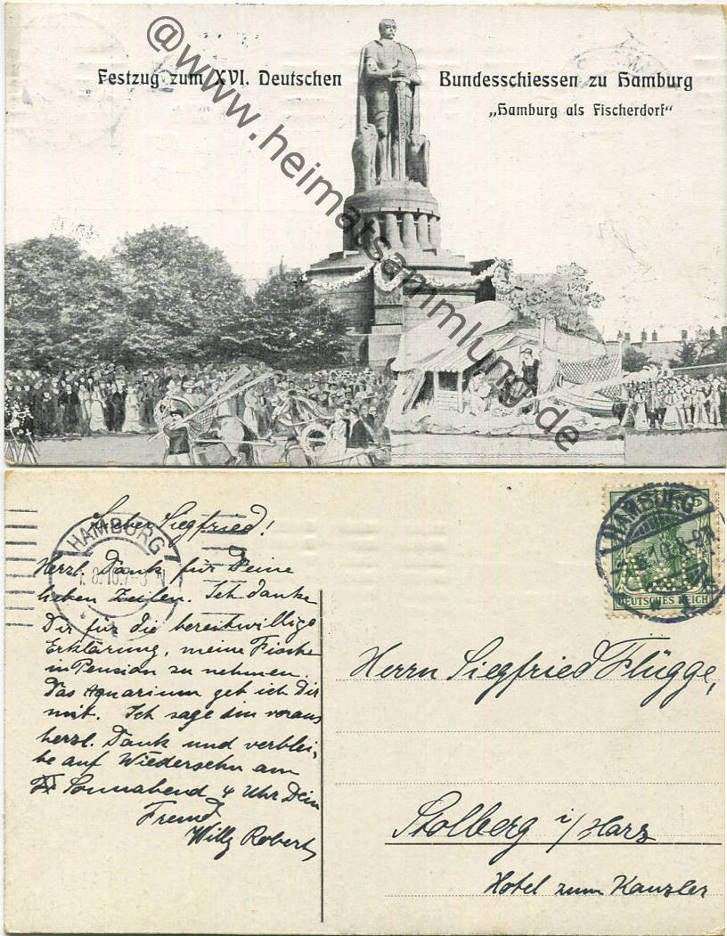 Festzug zum XVI. Deutschen Bundesschiessen zu Hamburg
„Hamburg als Fischerdorf"
@www.heimatsammlung.de
Lieber Siegfried!
Herzl. Dank für Deine
lieben Zeilen. Ich danke
Dir für die bereitwillige
Erklärung, meine Fische
in Pension zu nehmen.
Das Aquarium geb ich Dir
mit. Ich sage im voraus
herzl. Dank und verblei-
be auf Wiedersehn am
Sonnabend 4 Uhr Dein
Freund
Willy Robert
HAMBURG
HAMBURG
DEUTSCHES REICH
Herrn Siegfried Flügge,
Stolberg i/Harz
Hotel zum Kanzler